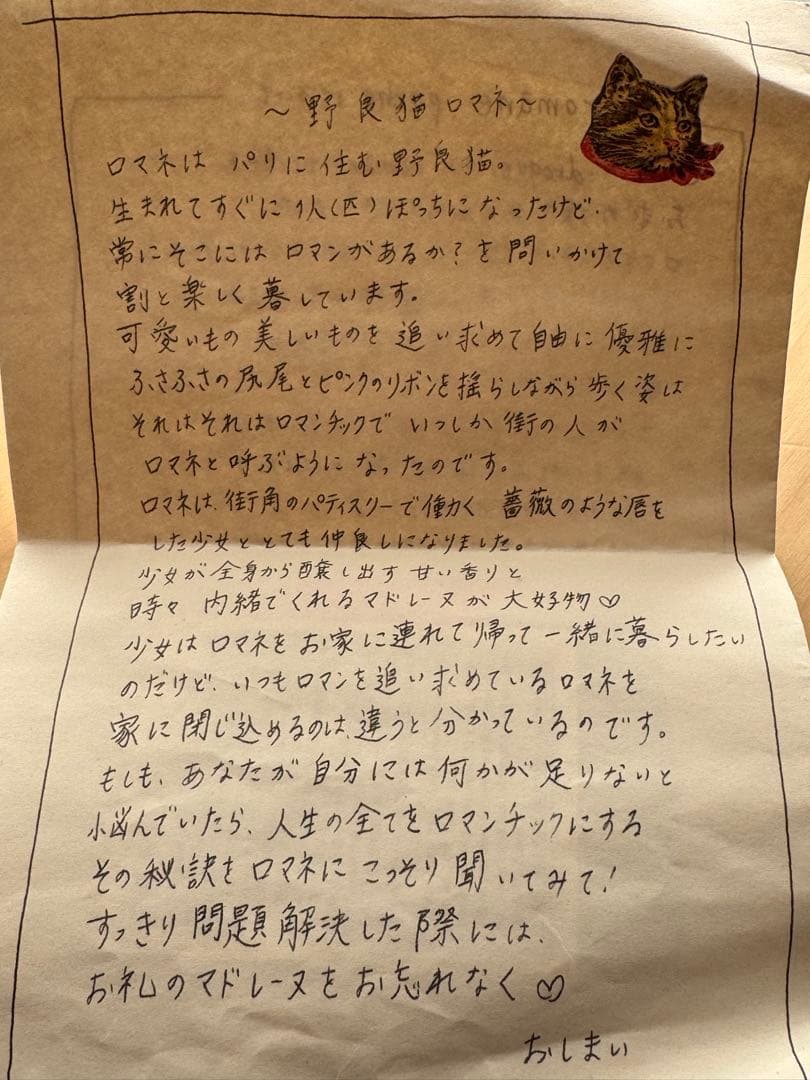 ～野良猫ロマネ～
ロマネは パリに住む野良猫。
生まれてすぐに1人(匹)ぼっちになったけど、
常にそこには ロマンがあるか?を問いかけて
割と楽しく暮しています。
可愛いもの 美しいものを 追い求めて自由に 優雅に
ふさふさの尻尾とピンクのリボンを揺らしながら 歩く姿は
それはそれはロマンチックで いつしか街の人が
ロマネと呼ぶようになったのです。
ロマネは、街角のパティスリーで働く 薔薇のような唇を
した少女ととても仲良しになりました。
少女が全身から醸し出す甘い香りと
時々 内緒でくれるマドレーヌが大好物♡
少女はロマネをお家に連れて帰って一緒に暮らしたい
のだけど、いつもロマンを追い求めているロマネを
家に閉じ込めるのは、違うと分かっているのです。
もしも、あなたが自分には何かが足りないと
悩んでいたら、人生の全てをロマンチックにする
その秘訣をロマネにこっそり聞いてみて!
すっきり問題解決した際には、
お礼のマドレーヌをお忘れなく♡
おしまい